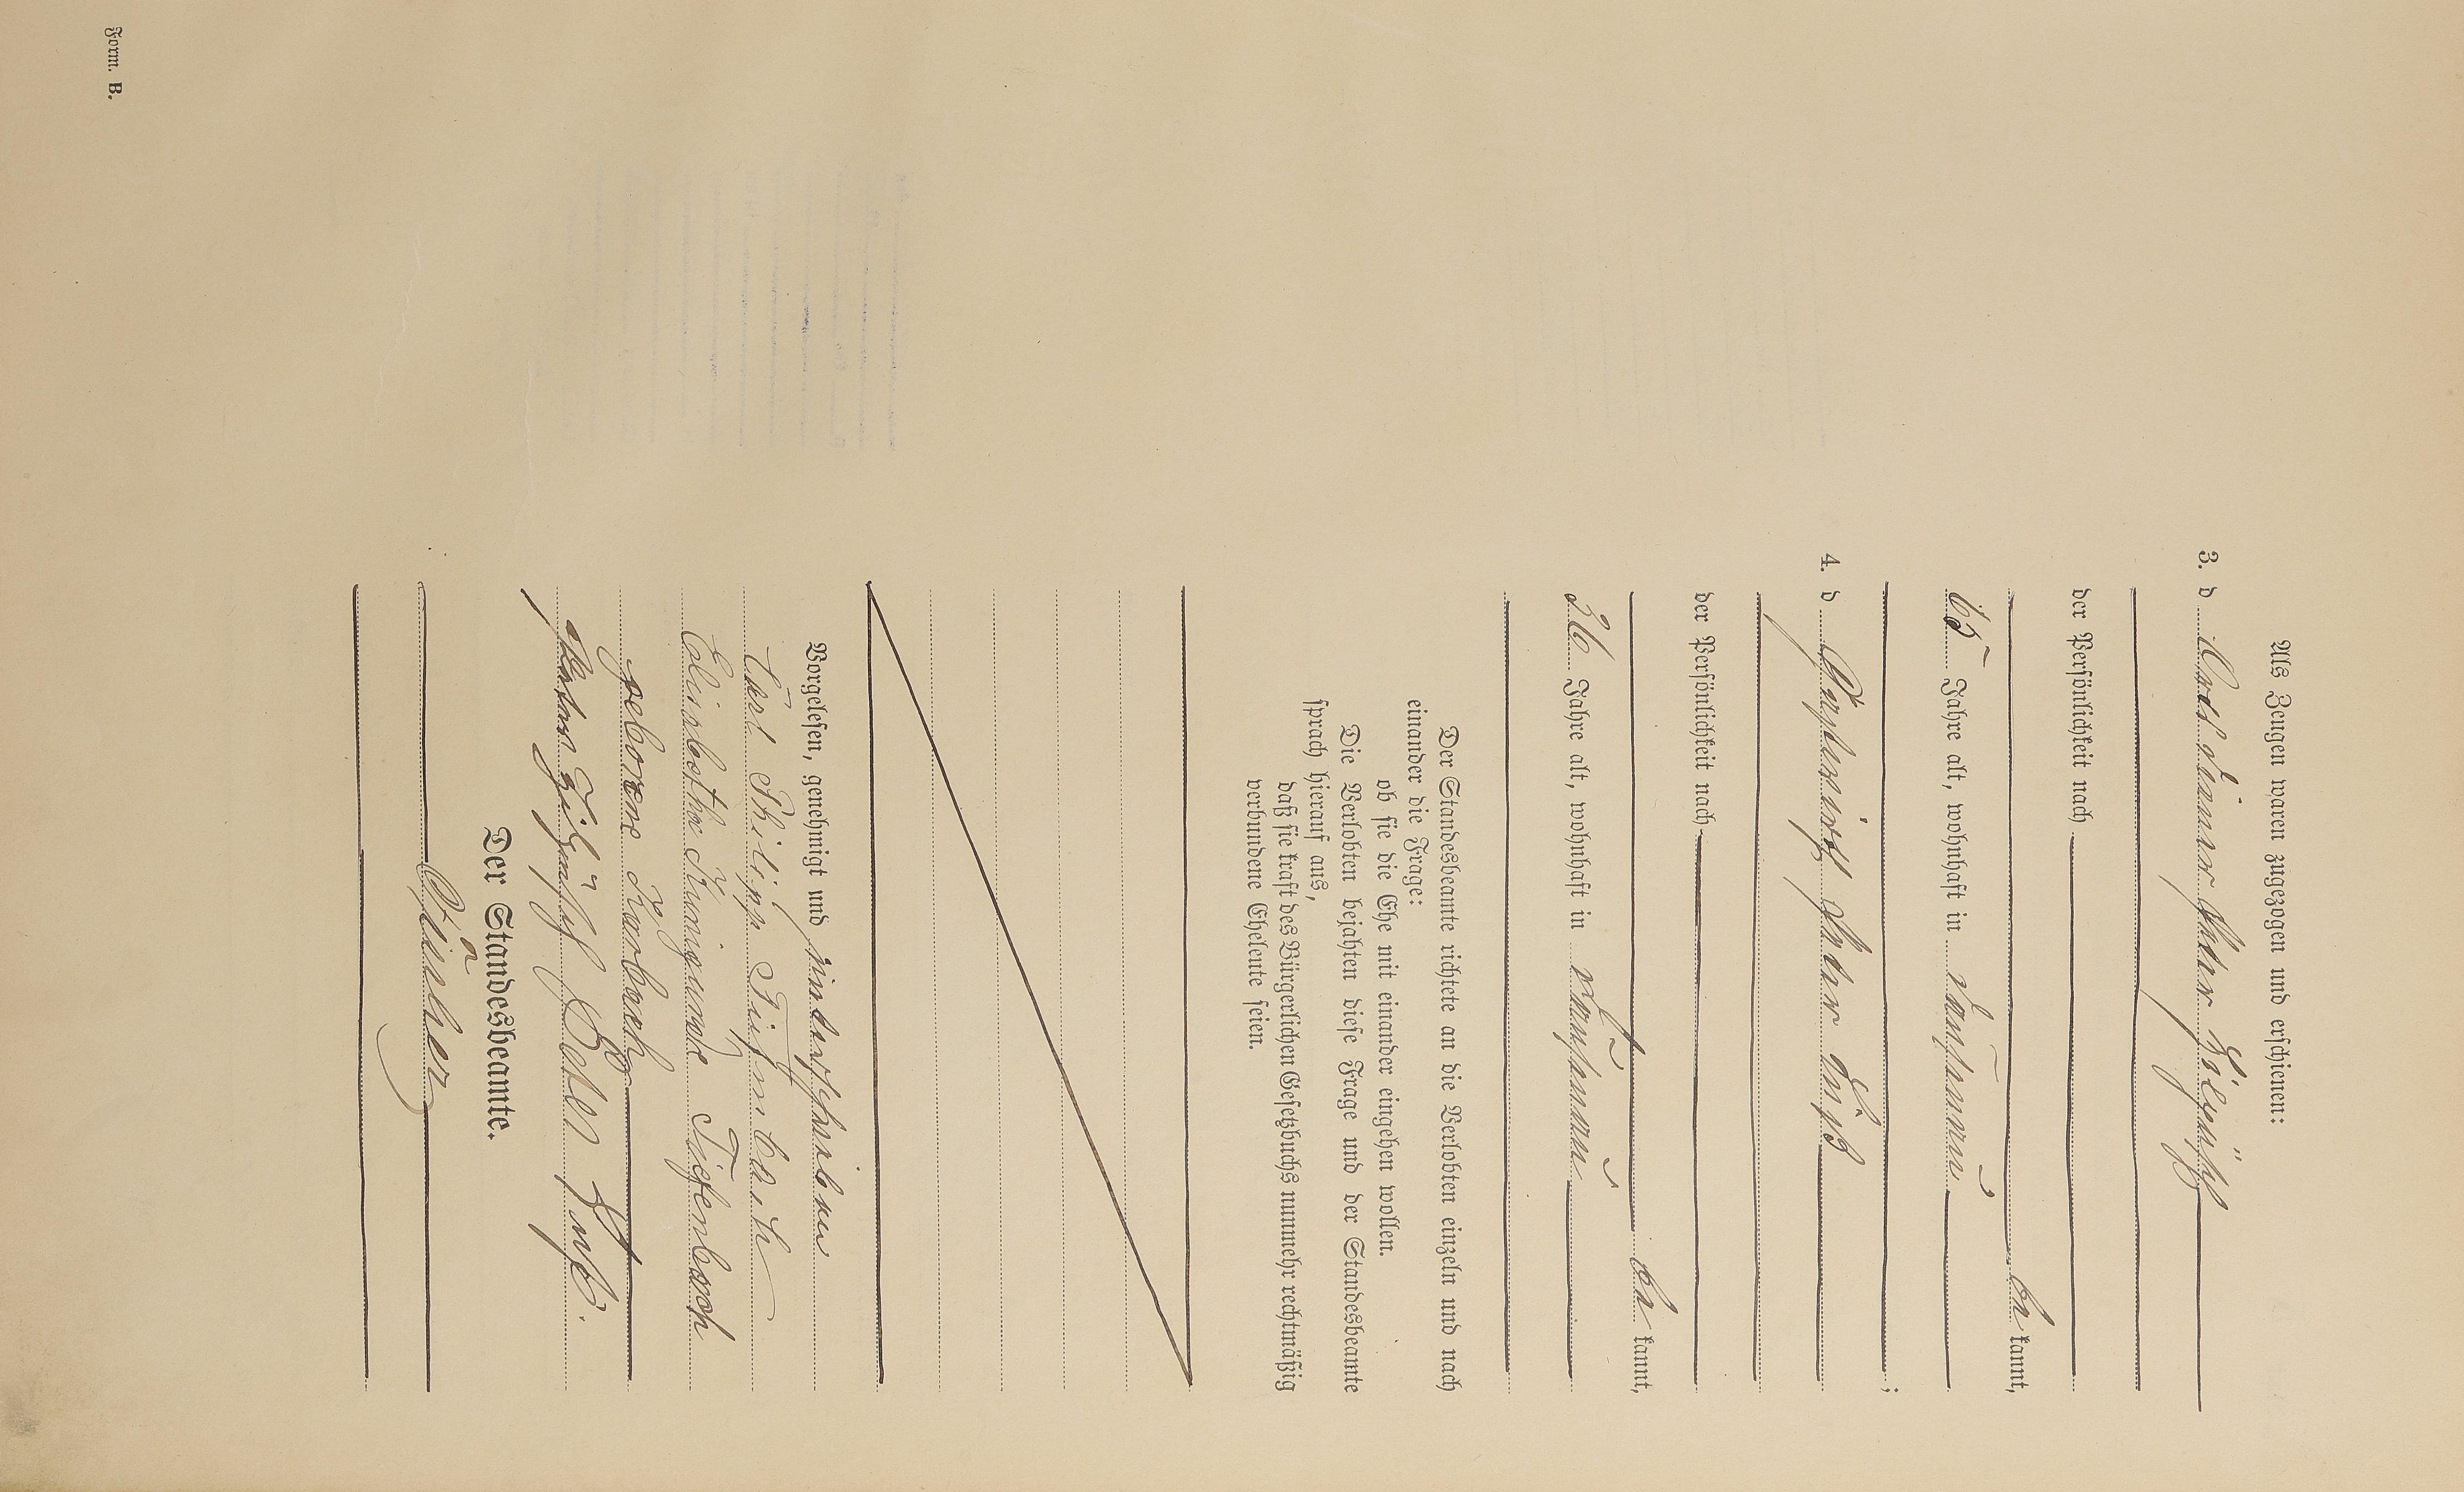 Als Zeugen waren zugezogen und erschienen:
3. d
der Persönlichkeit nach
be kannt,
65 Jahre alt, wohnhaft in
4. d Gastwirth Peter
;
der Persönlichkeit nach
be kannt,
36 Jahre alt, wohnhaft in
Der Standesbeamte richtete an die Verlobten einzeln und nach
einander die Frage:
ob sie die Ehe mit einander eingehen wollen.
Die Verlobten bejahten diese Frage und der Standesbeamte
sprach hierauf aus,
daß sie kraft des Bürgerlichen Gesetzbuchs nunmehr rechtmäßig
verbundene Eheleute seien.
Vorgelesen, genehmigt und unterschrieben
Carl Philipp Tiefenbach
Elisabetha Kunigunde Tiefenbach
geborene Karbach
Peter
Der Standesbeamte.
Form. B.